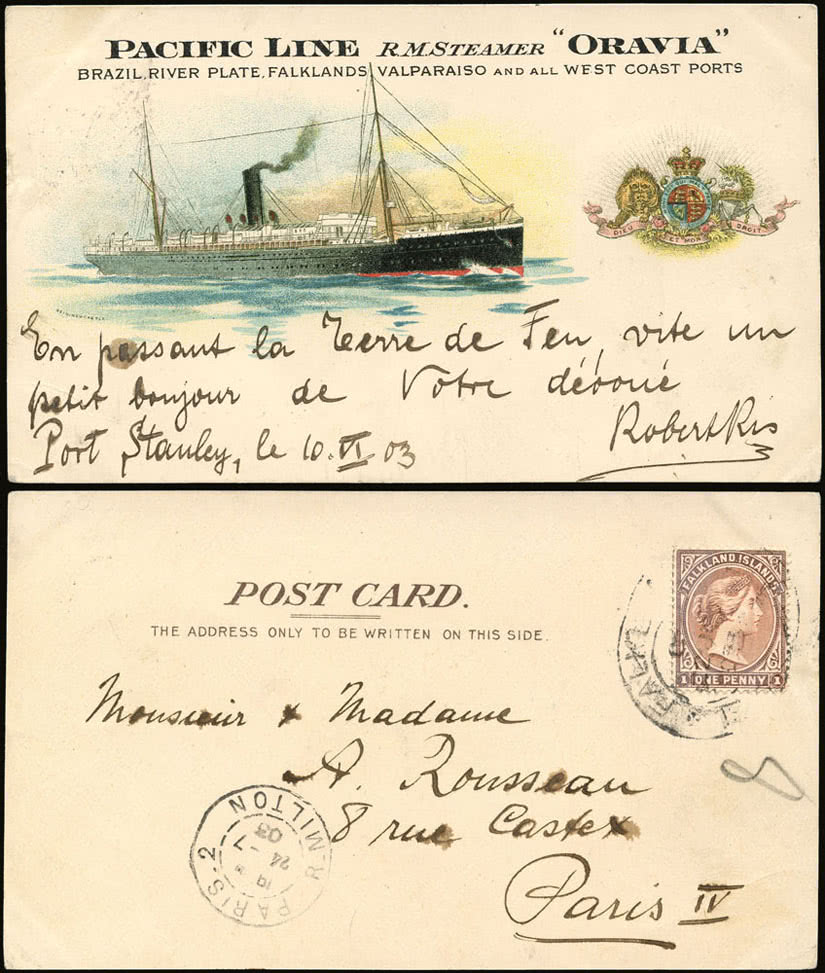 PACIFIC LINE R.M. STEAMER "ORAVIA"
BRAZIL, RIVER PLATE, FALKLANDS, VALPARAISO AND ALL WEST COAST PORTS
DIEU ET MON DROIT
En passant la Terre de Feu, vite un
petit bonjour de Votre dévoué
Robert Ris
Port Stanley, le 10. VI 03
POST CARD.
THE ADDRESS ONLY TO BE WRITTEN ON THIS SIDE.
FALKLAND ISLANDS
1 ONE PENNY 1
FALKL
Monsieur & Madame
A. Rousseau
8 rue Castex
Paris IV
8
PARIS-2 R. MILTON
24 - 7
03